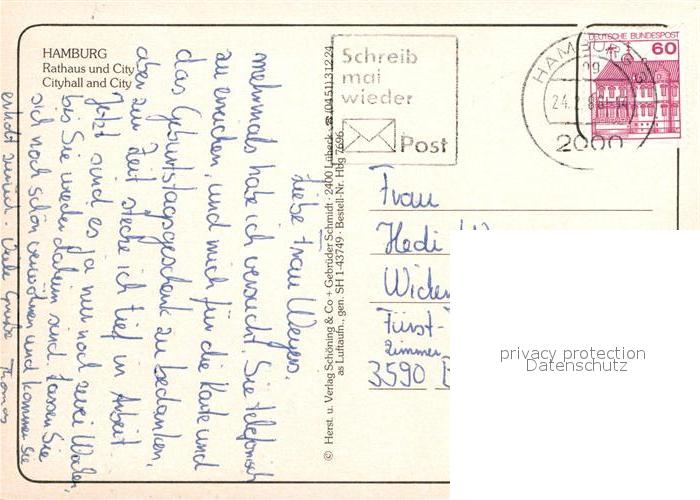 HAMBURG
Rathaus und City
Cityhall and City
Schreib
mal
wieder
Post
HAMBURG
2000
DEUTSCHE BUNDESPOST
60
Liebe Frau Weyers,
mehrmals habe ich versucht Sie telefonisch
zu erreichen, und mich für die Karte und
das Geburtstagsgeschenk zu bedanken,
aber zur Zeit stecke ich tief in Arbeit
Jetzt sind es ja nur noch zwei Wochen,
bis Sie wieder daheim sind. Lassen Sie
sich noch schön verwöhnen und kommen Sie
erholt zurück. Viele Grüße Thomas
© Herst. u. Verlag Schöning & Co + Gebrüder Schmidt · 2400 Lübeck · ☎ (0451) 31224
as Luftaufn., gen. SH 1-43749 · Bestell-Nr. Hbg 7696
Frau
Hedi
Fürst-
Zimmer
3590
privacy protection
Datenschutz